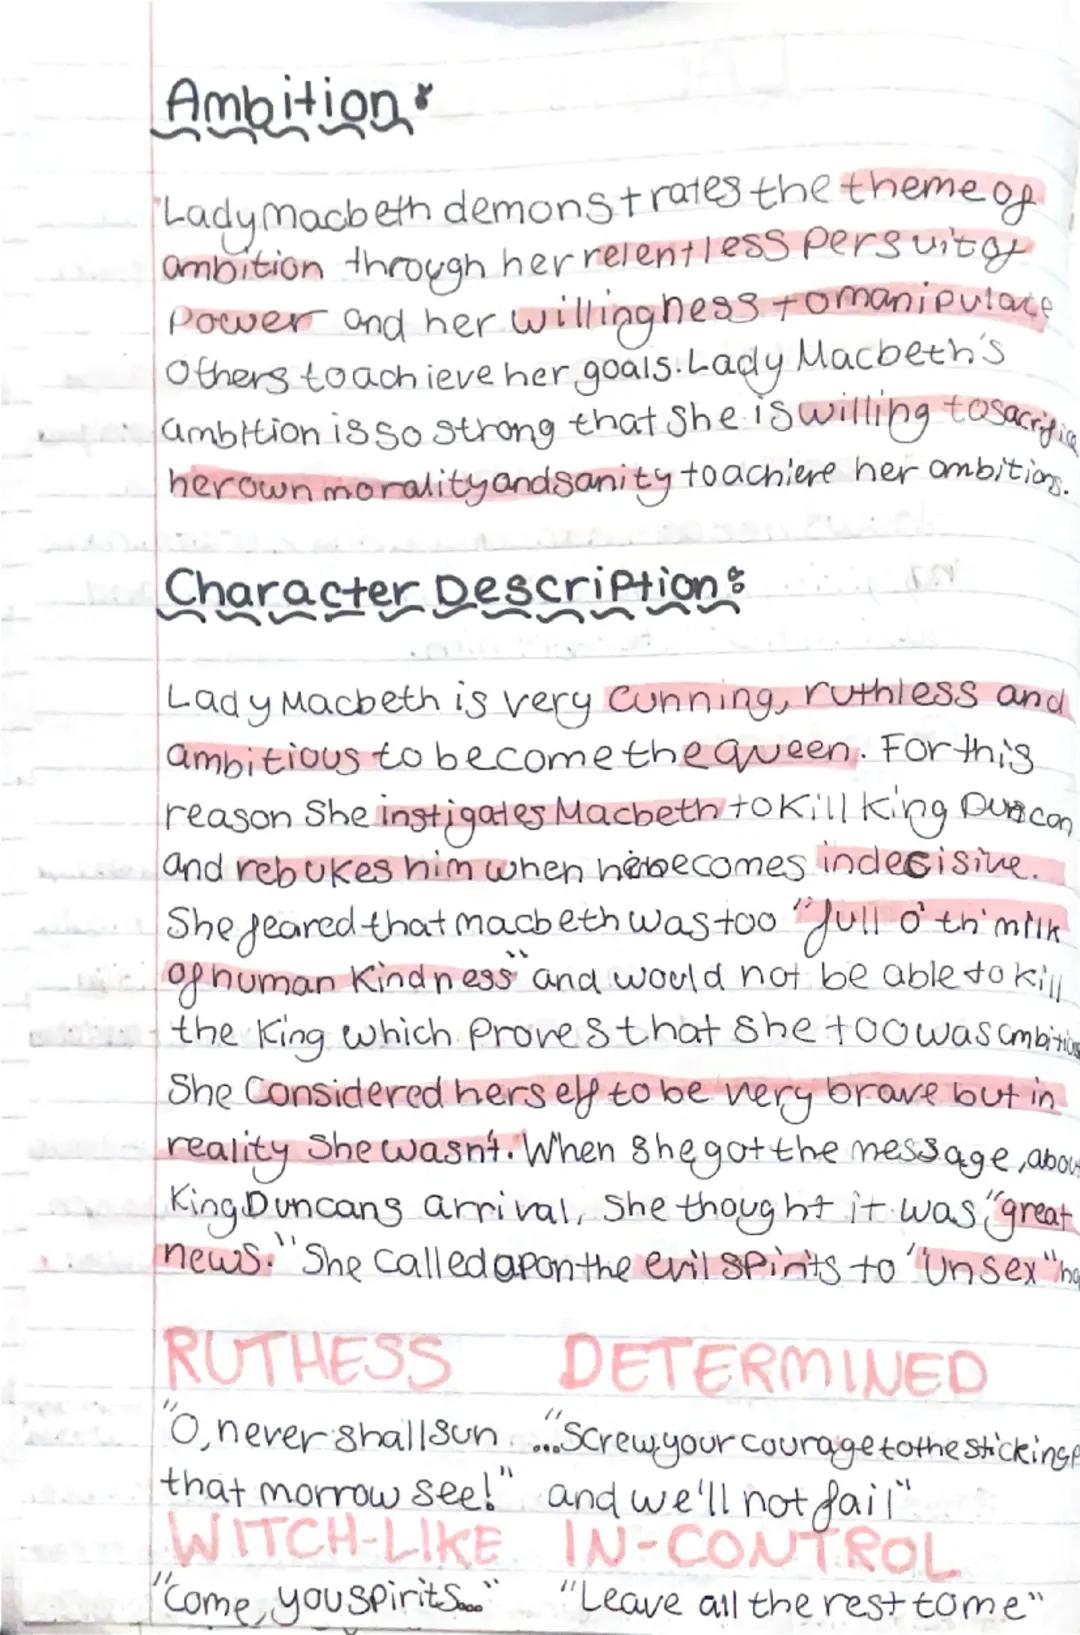 Ambition:
Lady macbeth demonstrates the theme of
ambition through her relentless persuit of
Power and her willingness to manipulate
Others to achieve her goals. Lady Macbeth's
ambition is so strong that she is willing to sacrifice
her own morality and sanity to achieve her ambitions.
Character Description:
Lady Macbeth is very cunning, ruthless and
ambitious to become the queen. For this
reason She instigates Macbeth to Kill King Duncan
and rebukes him when he becomes indecisive.
She feared that macbeth was too "full o' th' milk
of human Kindness" and would not be able to kill
the King which Proves that she too was ambitious
She Considered herself to be very brave but in
reality She wasn't. When she got the message, about
King Duncans arrival, She thought it was "great
news." She Called apon the evil spirits to "Unsex"
RUTHESS DETERMINED
"O, never shall sun ..."Screw your courage to the sticking
that morrow see!" and we'll not fail"
WITCH-LIKE IN-CONTROL
"Come, you spirits..." "Leave all the rest to me"